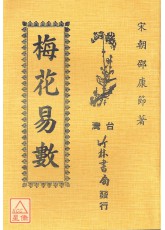 宋朝邵康節著
梅花易數
台灣
竹林書局發行